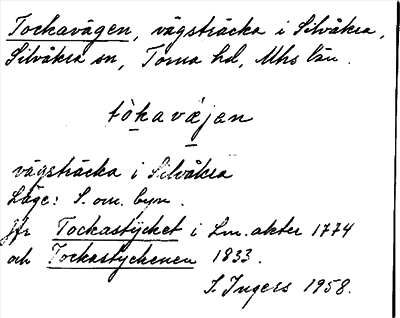 Tockavägen, vägsträcka i Silvåkra,
Silvåkra sn, Torna hd, Mhs län.
tòkavæjan
vägsträcka i Silvåkra
Läge: S. om. byn.
Jfr Tockastycket i Lm. akter 1774
och Tockastyckenen 1833.
I. Ingers 1958.